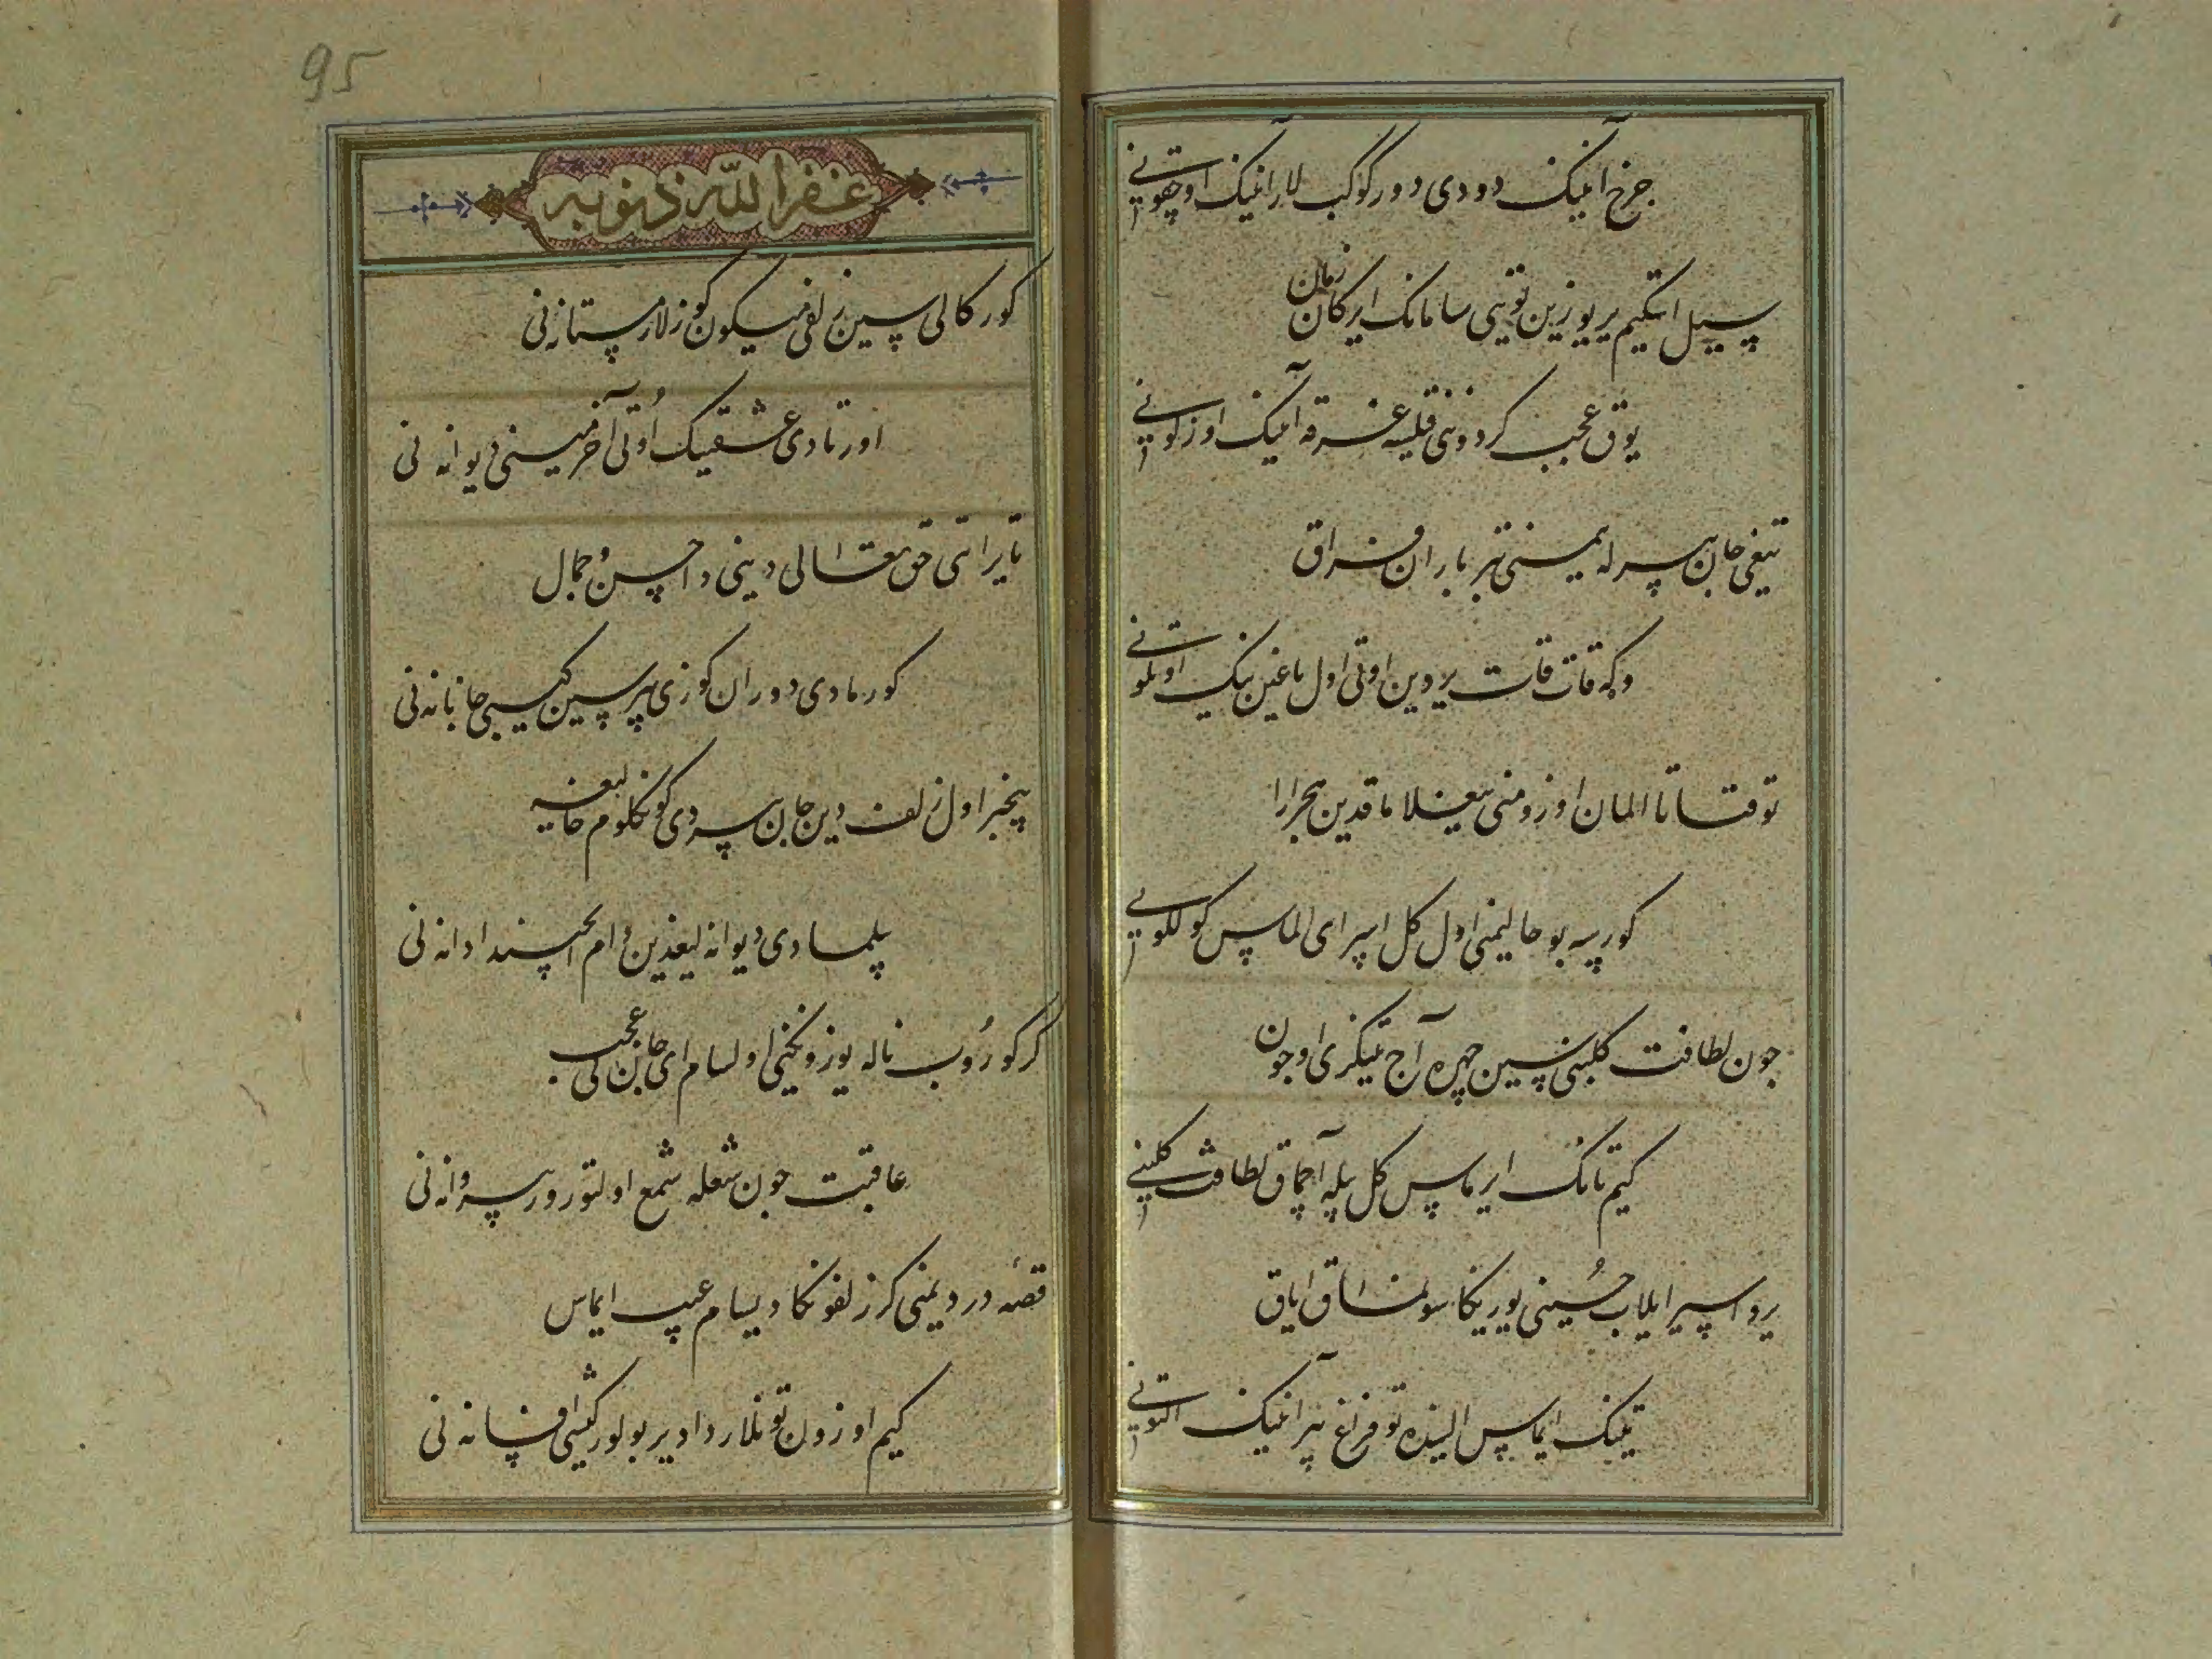 جرخ آنینک دودی دور کوکب لار آنینک اوچقونی
سیل اشکیم بر یوزین تونی سامانک ایرکان زمان
یوق عجب کردوننی قیلسه غرقه آنینک اوزلونی
تیغی جان بیرله یمسنی تیر باران فراق
وکه قات قات بردین اوتی اول یاغین نینک اوتلونی
توقتاتا المان اوزومنی ییغلاماقدین هجر ارا
کورسه بو حالیمنی اول کل اسرای الماس کولکونی
جون لطافت کلبنی سین چهره آج تیکری اوجون
کیم تانک ایرماس کل بیله آچماق لطافت کلبنی
یردا سیر ایلاب حسینی یوریکا سولماق ایاق
تینک ایماس الینده توفراغ بیرلا نینک التونی
95
غفر الله ذنوبه
کورکالی سین زلفی میکون کوزلار مستانه نی
اورتادی عشقینک اوتی آخر مینی دیوانه نی
تا یراتتی حق تعالی دینی دا حسن و جمال
کورمادی دوران کوزی بیر سین کیبی جانانه نی
بیخبر اول زلف دین جان بیردی کونکلوم خالیغه
بیلمادی دیوانه لیغدین دام ایچیندا دانه نی
کر کوروب ناله یوزونکنی اولسام ای جان نی عجب
عاقبت جون شعله شمع اولتورور پروانه نی
قصه دردیمنی کر زلفونکا دیسام عیب ایماس
کیم اوزون تونلاردا دیر بولور کیشی افسانه نی